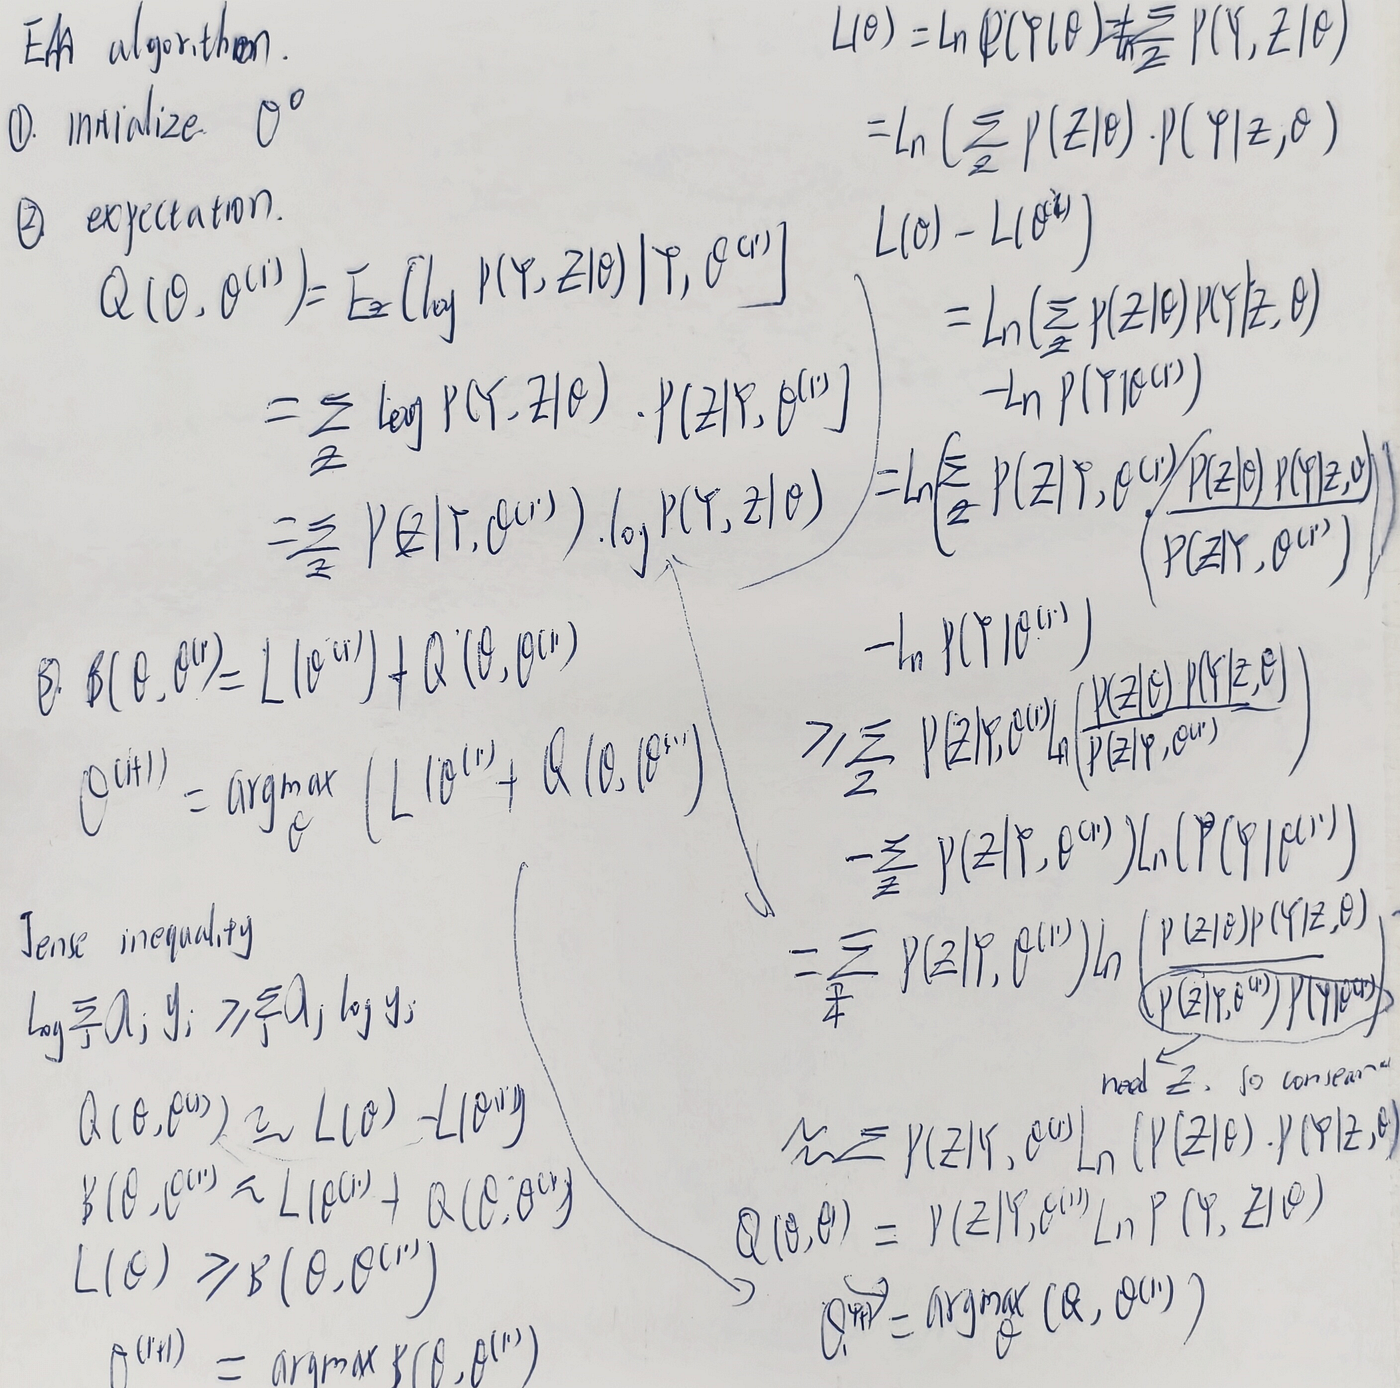 EM algorithm.
① initialize θ⁰
② expectation.
Q(θ, θ⁽ⁱ⁾) = E_z [log P(Y, Z|θ) | Y, θ⁽ⁱ⁾]
= Σ_z log P(Y, Z|θ) · P(Z|Y, θ⁽ⁱ⁾]
= Σ_z P(Z|Y, θ⁽ⁱ⁾) · log P(Y, Z|θ)
③. B(θ, θ⁽ⁱ⁾) = L(θ⁽ⁱ⁾) + Q(θ, θ⁽ⁱ⁾)
θ⁽ⁱ⁺¹⁾ = argmax_θ (L(θ⁽ⁱ⁾ + Q(θ, (θ⁽ⁱ⁾)
Jense inequality
log Σ_j λ_j y_j ≥ Σ_j λ_j log y_j
Q(θ, θ⁽ⁱ⁾) ≃ L(θ) - L(θ⁽ⁱ⁾)
B(θ, θ⁽ⁱ⁾ ≈ L(θ⁽ⁱ⁾ + Q(θ, θ⁽ⁱ⁾)
L(θ) ≥ B(θ, θ⁽ⁱ⁾)
θ⁽ⁱ⁺¹⁾ = argmax B(θ, θ⁽ⁱ⁾)
L(θ) = Ln P(Y|θ) = Σ_z P(Y, Z|θ)
= Ln (Σ_z P(Z|θ) · P(Y|Z, θ)
L(θ) - L(θ⁽ⁱ⁾)
= Ln (Σ_z P(Z|θ) P(Y|Z, θ)
- Ln P(Y|θ⁽ⁱ⁾)
= Ln (Σ_z P(Z|Y, θ⁽ⁱ⁾) (P(Z|θ) P(Y|Z, θ) / P(Z|Y, θ⁽ⁱ⁾)))
- Ln P(Y|θ⁽ⁱ⁾)
≥ Σ_z P(Z|Y, θ⁽ⁱ⁾) Ln (P(Z|θ) P(Y|Z, θ) / P(Z|Y, θ⁽ⁱ⁾))
- Σ_z P(Z|Y, θ⁽ⁱ⁾) Ln (P(Y|θ⁽ⁱ⁾)
= Σ_z P(Z|Y, θ⁽ⁱ⁾) Ln (P(Z|θ) P(Y|Z, θ) / P(Z|Y, θ⁽ⁱ⁾) P(Y|θ⁽ⁱ⁾))
need Z. so
≈ Σ P(Z|Y, θ⁽ⁱ⁾ Ln (P(Z|θ) · P(Y|Z, θ)
Q(θ, θ) = P(Z|Y, θ⁽ⁱ⁾ Ln P(Y, Z|θ)
θ⁽ⁱ⁺¹⁾ = argmax_θ (Q, θ⁽ⁱ⁾)